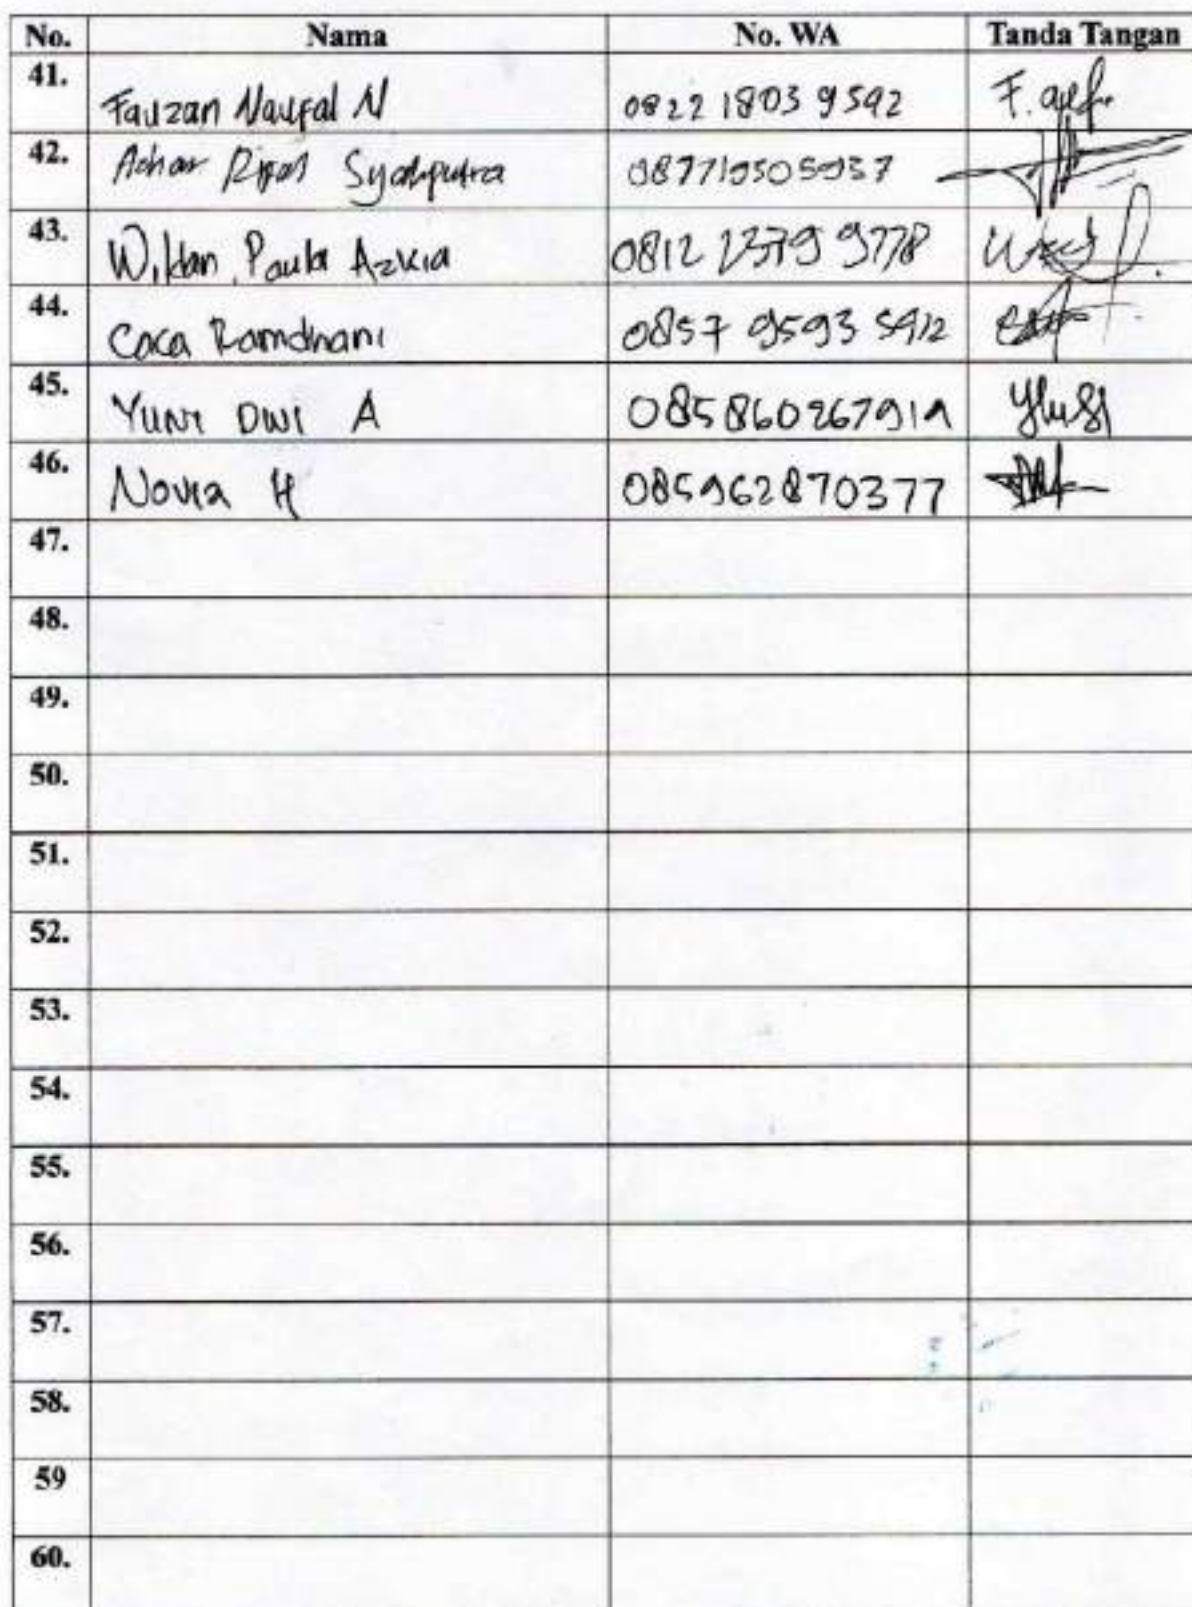 No. Nama No. WA Tanda Tangan
41. Fauzan Naufal N 0822 1803 9592
42. Syahputra 087719505957
43. Wildan Paula Azkia 0812 2379 9778
44. Caca Ramdhani 0857 9593 5912
45. Yuni Dwi A 085860267919
46. Novia H 085962870377
47.
48.
49.
50.
51.
52.
53.
54.
55.
56.
57.
58.
59
60.